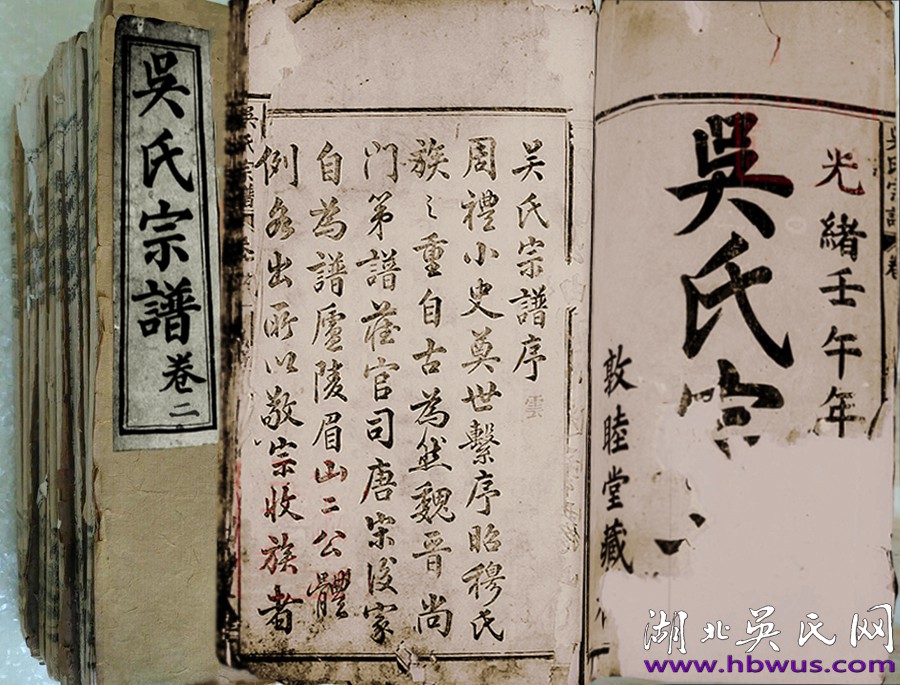 吳氏宗譜 卷二
吴氏宗譜序
周禮小史奠世繫序昭穆氏
族之重自古為然魏晉尚
门第譜莊官司唐宋後家
自為譜廬陵眉山二公體
例各出所以敬宗收族者
吳氏宗譜
光緒壬午年
吳氏宗
敦睦堂藏
湖北吴氏网
www.hbwus.com